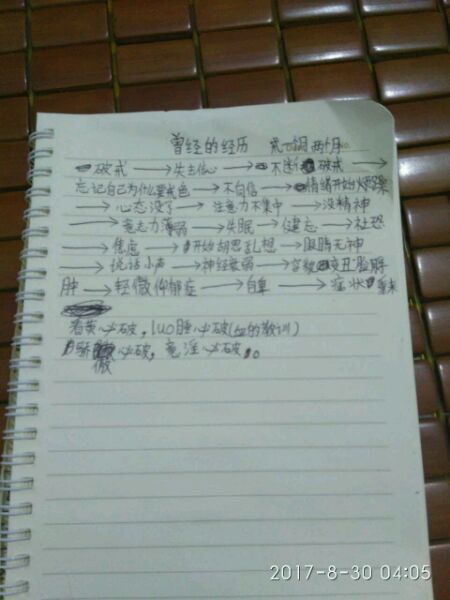 曾经的经历 戒一个月 两个月
破戒 → 失去信心 → 不断破戒 →
忘记自己为什么要戒色 → 不自信 → 情绪开始烦躁
→ 心态没了 → 注意力不集中 → 没精神
→ 意志力薄弱 → 失眠 → 健忘 → 社恐
→ 焦虑 → 开始胡思乱想 → 眼睛无神
→ 说话小声 → 神经衰弱 → 容貌变丑脸浮
肿 → 轻微抑郁症 → 自卑 → 症状
看黄必破，luo睡必破(血的教训)
骄傲必破，意淫必破。
2017-8-30 04:05